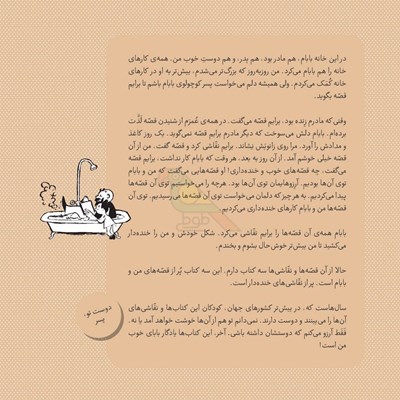 در این خانه بابام، هم مادر بود، هم پدر، و هم دوستِ خوب من. همه‌ی کارهای
خانه را هم بابام می‌کرد. من روزبه‌روز که بزرگ‌تر می‌شدم، بیش‌تر به او در کارهای
خانه کُمَک می‌کردم. ولی همیشه دلم می‌خواست پسر کوچولوی بابام باشم تا برایم
قصّه بگوید.
وقتی که مادرم زنده بود، برایم قصّه می‌گفت. در همه‌ی عُمرَم از شنیدن قصّه لذّت
بُرده‌ام. بابام دلش می‌سوخت که دیگر مادرم برایم قصّه نمی‌گوید. یک روز کاغذ
و مدادش را آورد. مرا روی زانویش نشاند. برایم نقّاشی کرد و قصّه گفت. من از آن
قصّه خیلی خوشم آمد. از آن روز به بعد، هر وقت که بابام کار نداشت، برایم قصّه
می‌گفت، چه قصّه‌های خوب و خنده‌داری! او قصّه‌هایی می‌گفت که من و بابام
توی آن‌ها بودیم. آرزوهایمان توی آن‌ها بود. هرچه را می‌خواستیم توی آن قصّه‌ها
پیدا می‌کردیم. به هر چیز که دلمان می‌خواست توی آن قصّه‌ها می‌رسیدیم. توی آن
قصّه‌ها من و بابام کارهای خنده‌داری می‌کردیم.
بابام همه‌ی آن قصّه‌ها را برایم نقّاشی می‌کرد. شکل خودش و من را خنده‌دار
می‌کشید تا من بیش‌تر خوش‌حال بشوم و بخندم.
حالا از آن قصّه‌ها و نقّاشی‌ها سه کتاب دارم. این سه کتاب پُر از قصّه‌های من و
بابام است. پر از نقّاشی‌های خنده‌دار است.
سال‌هاست که، در بیش‌تر کشورهای جهان، کودکان این کتاب‌ها و نقّاشی‌های
آن‌ها را می‌بینند و دوست دارند. نمی‌دانم تو هم از آن‌ها خوشت خواهد آمد یا نه.
فَقَط آرزو می‌کنم که دوستشان داشته باشی. آخر، این کتاب‌ها یادگار بابای خوب
من است!
دوست تو،
پسر